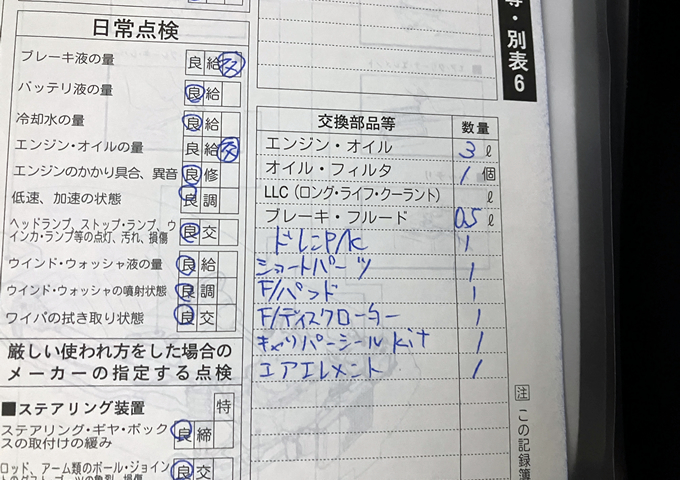 等・別表6
日常点検
ブレーキ液の量 良 給 交
バッテリ液の量 良 給
冷却水の量 良 給
エンジン・オイルの量 良 給 交
エンジンのかかり具合、異音 良 修
低速、加速の状態 良 調
ヘッドランプ、ストップ・ランプ、ウ
インカ・ランプ等の点灯、汚れ、損傷 良 交
ウインド・ウォッシャ液の量 良 給
ウインド・ウォッシャの噴射状態 良 調
ワイパの拭き取り状態 良 交
厳しい使われ方をした場合の
メーカーの指定する点検
■ステアリング装置 特
ステアリング・ギヤ・ボック
スの取付けの緩み 良 締
ロッド、アーム類のボール・ジョイン 良 交
交換部品等 数量
エンジン・オイル 3 ℓ
オイル・フィルタ 1 個
LLC(ロング・ライフ・クーラント) ℓ
ブレーキ・フルード 0.5 ℓ
ドレンP/K 1
ショートパーツ 1
F/パッド 1
F/ディスクローター 1
キャリパーシール kit 1
エアエレメント 1
注 この記録簿